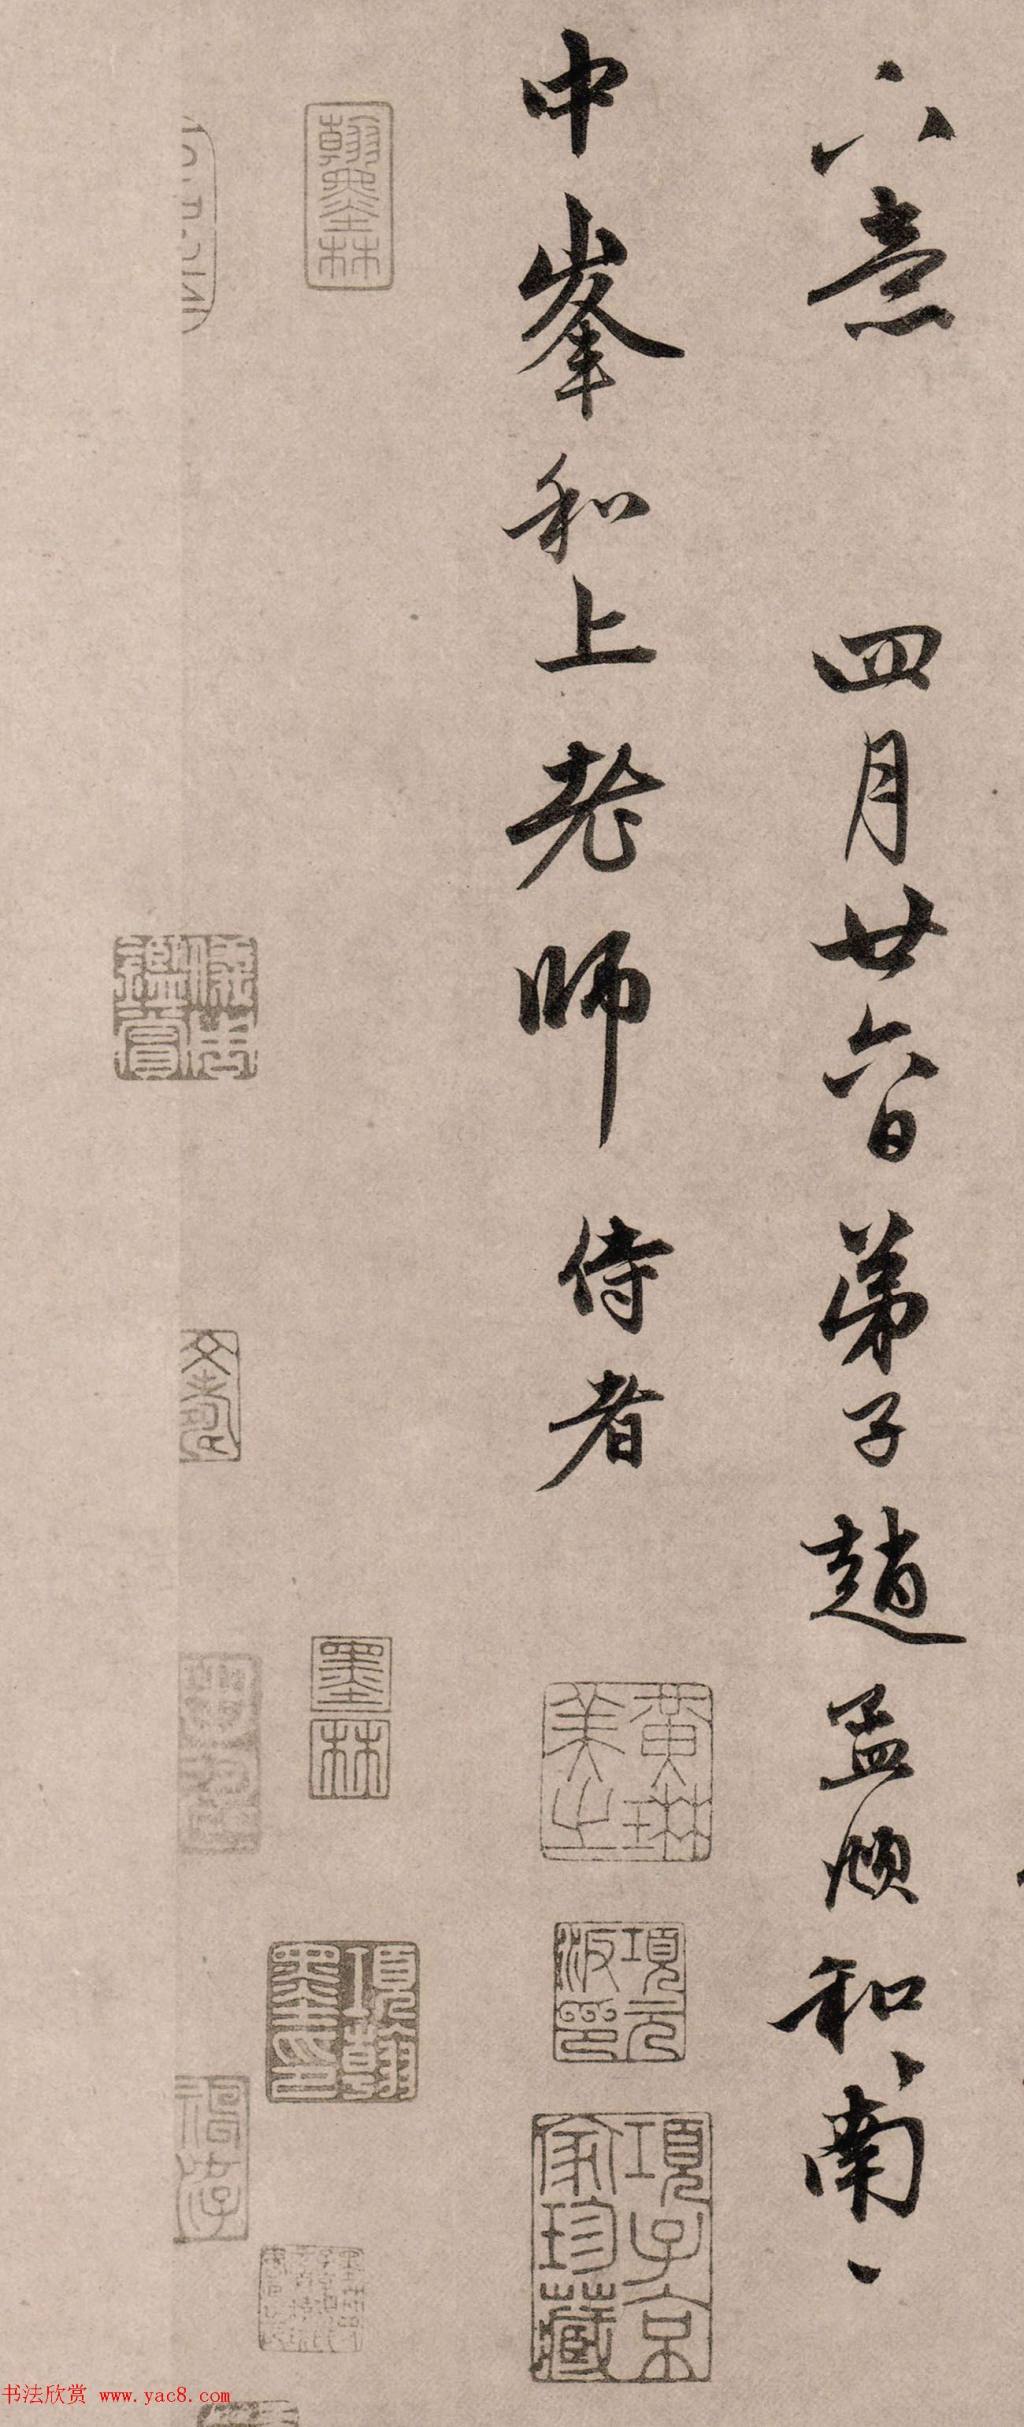 不意 四月廿六日弟子趙孟頫和南、
中峯和上老師侍者
翰墨林
儀周鑑賞
墨林
黃琳美之
項元汴印
項墨林印
項子京家珍藏
书法欣赏 www.yac8.com